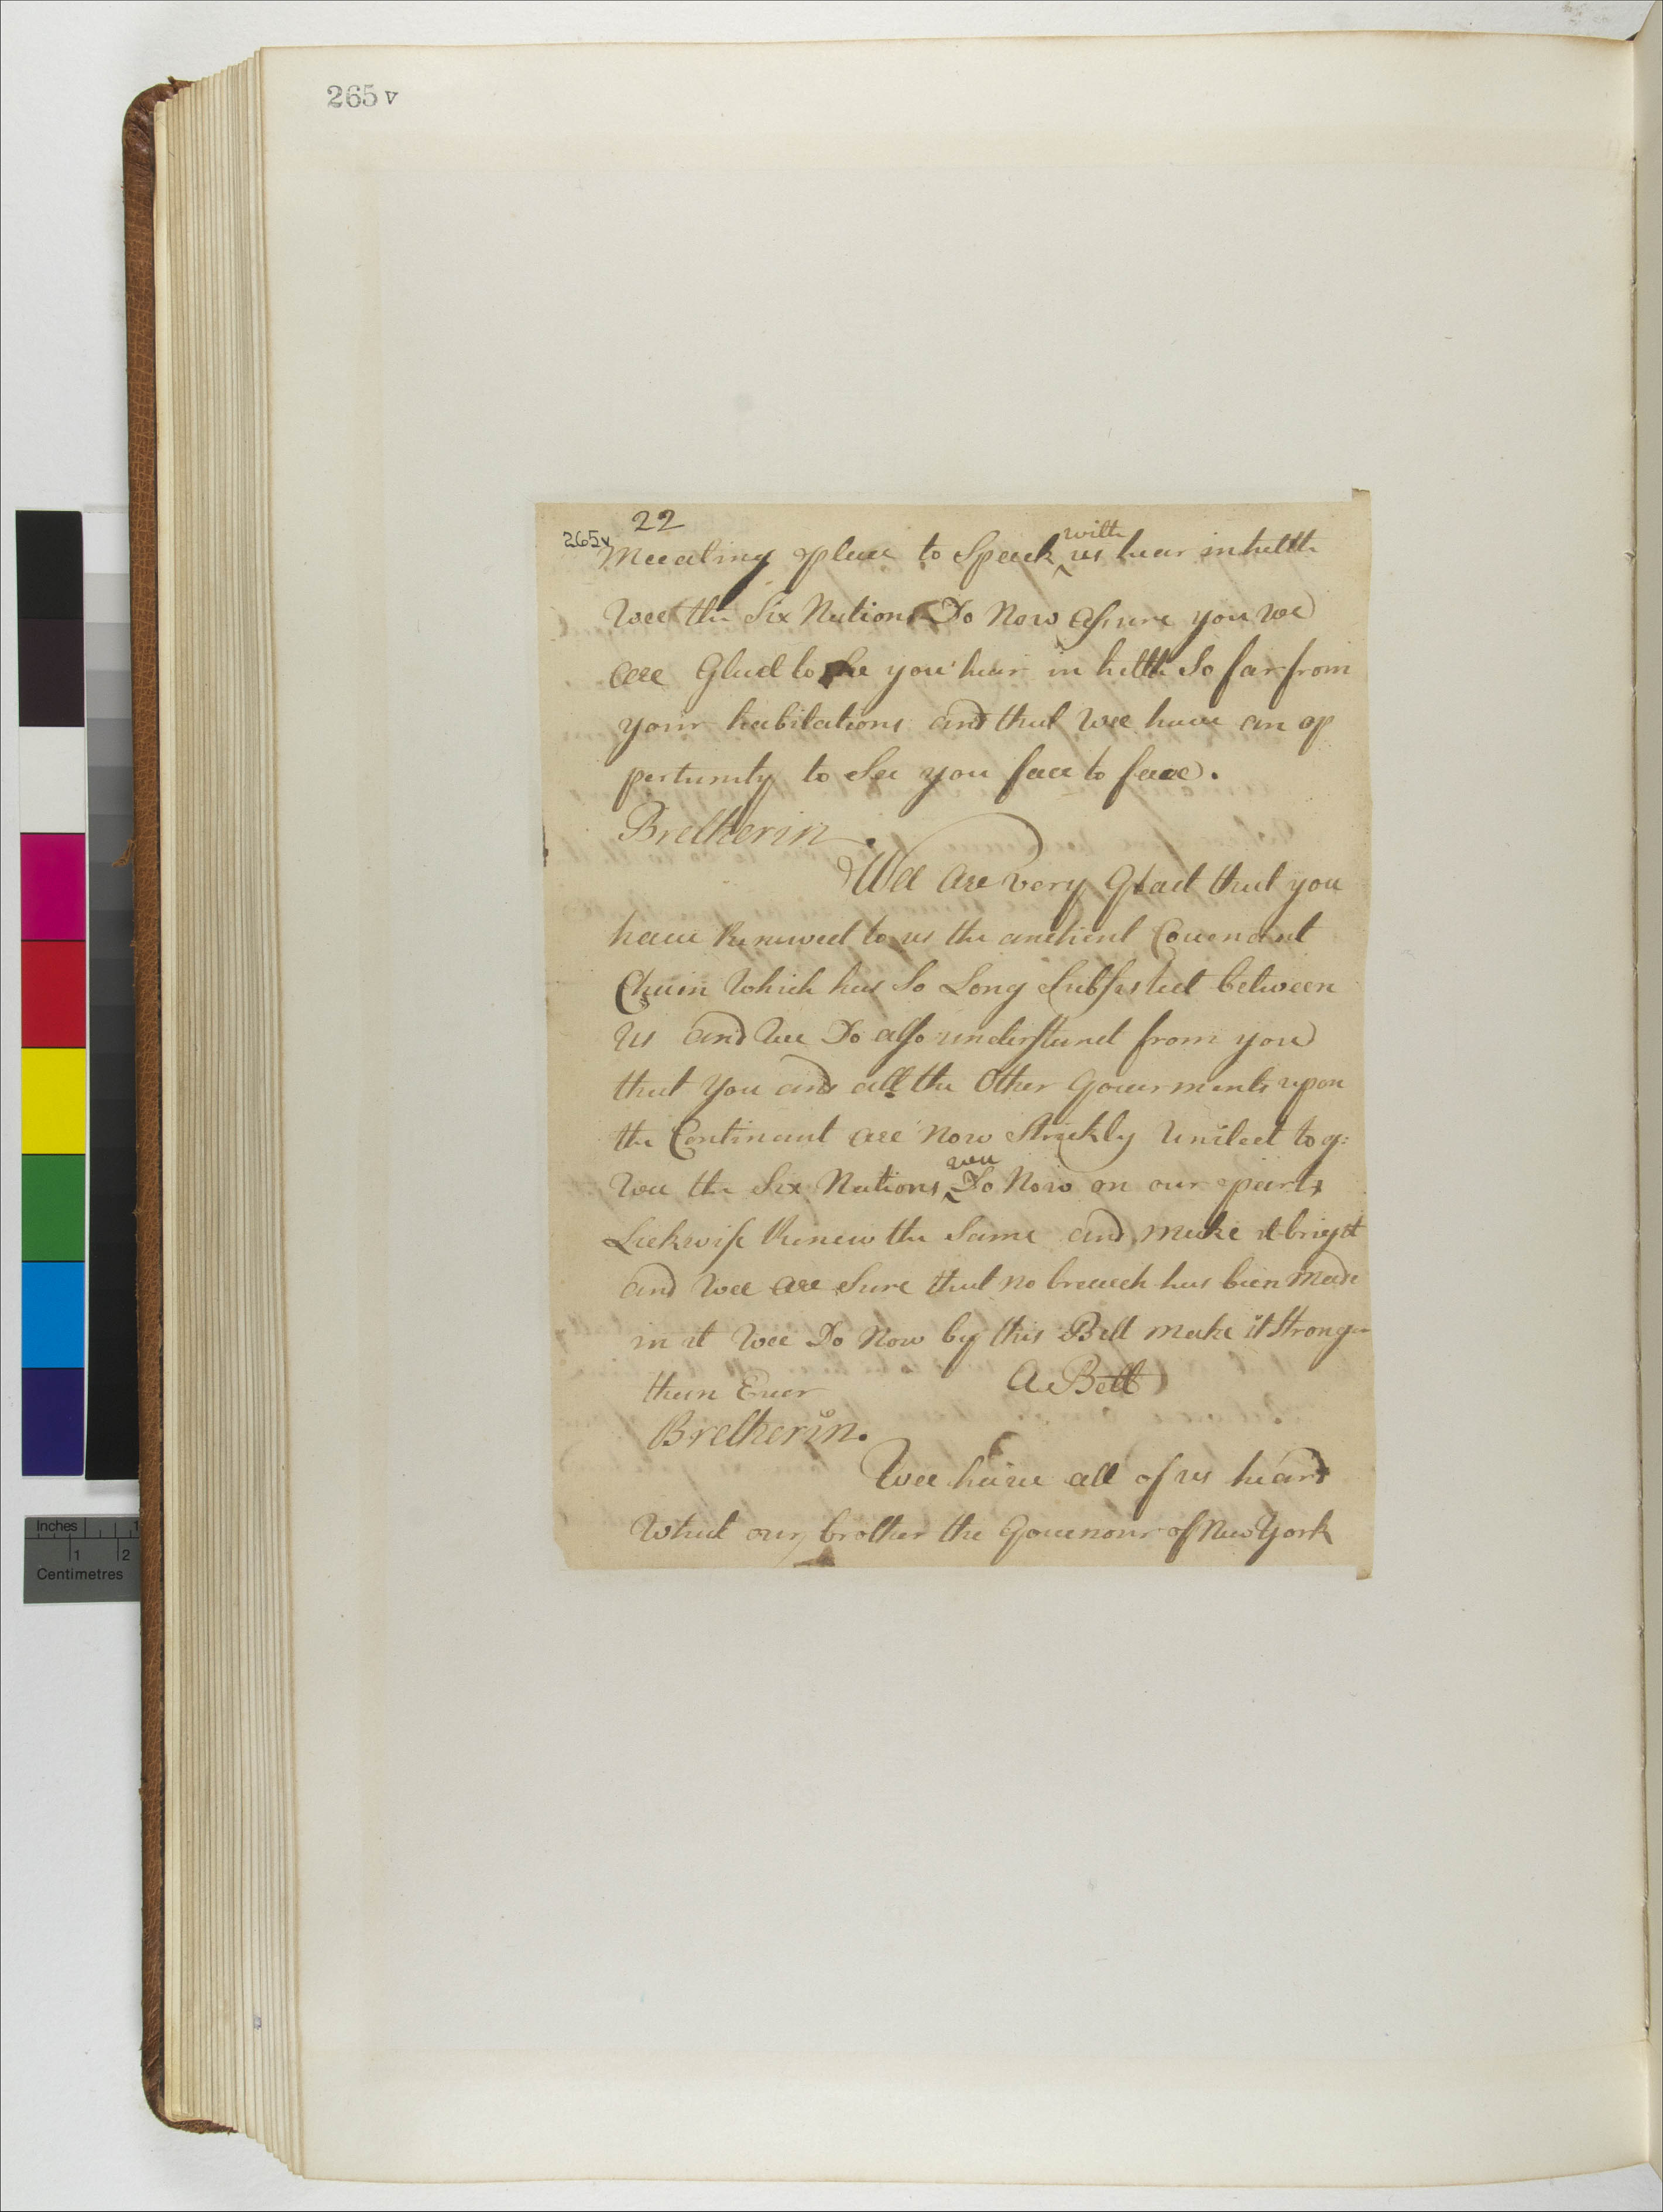 265v
22
265v
Meeating place to Speack with us hear in helth
Wee the Six Nations Do Now assure you we
are Glad to See you hear in helth So far from
your habitations and that wee have an op
pertunity to See you face to face.
Bretherin.
Wee are very Glad that you
have Renewed to us the antient Couenant
Chain Which has So Long Subsisted between
Us and Wee Do also understand from you
that You and all the Other Gouerments upon
the Continant are now Strickly United tog:
Wee the Six Nations wee Do Now on our parts
Lickwise Renew the Same and make it brigt
and Wee are Sure that no breach has bien Made
in it Wee Do Now by this Belt make it Stronger
then Euer
A Belt
Bretherin.
Wee haive all of us heard
What our brother the Gouenour of New York
Inches
1
1
2
Centimetres